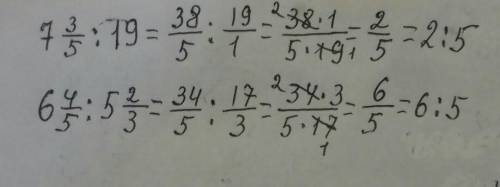 7 3/5 : 19 = 38/5 : 19/1 = 38·1/5·19 = 2/5 = 2:5
6 4/5 : 5 2/3 = 34/5 : 17/3 = 34·3/5·17 = 6/5 = 6:5